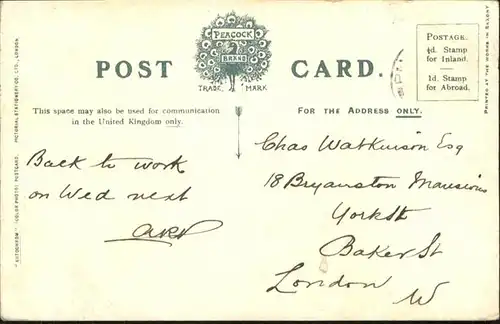 PEACOCK
BRAND
TRADE MARK
POST CARD.
POSTAGE.
½d. Stamp
for Inland.
1d. Stamp
for Abroad.
This space may also be used for communication
in the United Kingdom only.
FOR THE ADDRESS ONLY.
Back to work
on Wed next
Chas Watkinson Esq
18 Bryanston Mansions
York St
Baker St
London
W
"AUTOCHROM" (COLOR PHOTO) POSTCARD. PICTORIAL STATIONERY CO. LTD., LONDON.
PRINTED AT THE WORKS IN SAXONY